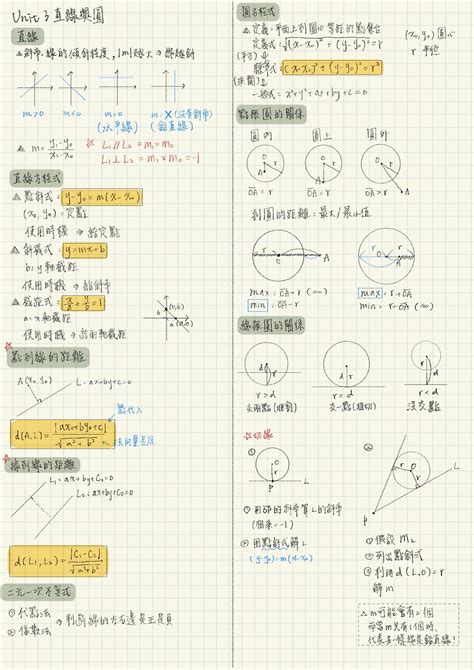 Unit 3 直線與圓
直線
△ 斜率:線的傾斜程度, |m|越大→線越斜
m>0
m<0
m=0
(水平線)
m:X (沒有斜率)
(鉛直線)
△ m= y₁-y₀ / x₁-x₀
☆ L₁∥L₂ = m₁=m₂
L₁⊥L₂ = m₁×m₂=-1
直線方程式
△ 點斜式: y-y₀=m(x-x₀)
(x₀, y₀)=定點
使用時機→給定點
△ 斜截式: y=mx+b
b: y軸截距
使用時機→給斜率
△ 截距式: x/a + y/b = 1
a: x軸截距
使用時機→給兩截距
(0,b)
(a,0)
☆
點到線的距離
A(x₀,y₀)
L: ax+by+c=0
點代入
d(A,L)= |ax₀+by₀+c| / √a²+b²
法向量長度
☆
線到線的距離
L₁=ax+by+C₁=0
L₂=ax+by+C₂=0
d(L₁,L₂)= |C₁-C₂| / √a²+b²
二元一次不等式
① 代點法
② 係數法
→判斷線的左右邊是正是負
圓方程式
△ 定義:平面上到圓心等距的點集合
定義式=√(x-x₀)²+(y-y₀)²=r
(x₀,y₀) 圓心
r 半徑
(平方)
標準式=(x-x₀)²+(y-y₀)²=r²
(展開)
一般式=x²+y²+dx+ey+f=0
點與圓的關係
圓內
圓上
圓外
O
r
A
O
r
A
O
r
A
OA<r
OA=r
OA>r
到圓的距離:最大/最小值
r
O
A
r
O
A
max=OA+r
min=r-OA
max=r+OA
min=OA-r
線與圓的關係
r
d
r
d
r
d
r>d
r=d
r<d
交兩點(相割)
交一點(相切)
沒交點
☆切線
①
O
r
P
L
②
r
P
① 用OP的斜率算L的斜率
(相乘=-1)
② 用點斜式解L
(y-y₀)=m(x-x₀)
① 假設m_L
② 列出點斜式
③ 利用d(L,O)=r
解m
△ m可能會有2個
而當m只有1個時,
代表有一條線是鉛直線!